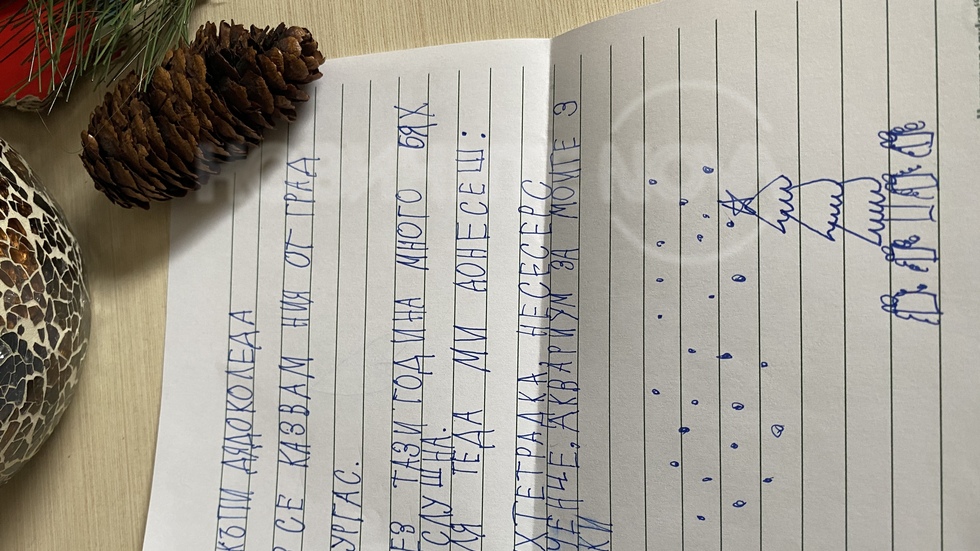 КЪПИ ДЯДОКОЛЕДА
СЕ КАЗВАМ НИЯ ОТ ГРАД
УРГАС.
ЕЗ ТАЗИ ГОДИНА МНОГО БЯХ
СЛУШНА.
ЛЯ ТЕДА МИ ДОНЕСЕШ:
ХТЕТРАДКА, НЕСЕСЕРС
ЧЕНЦЕ, АКВАРИУМ ЗА МОИТЕ 3
КИ